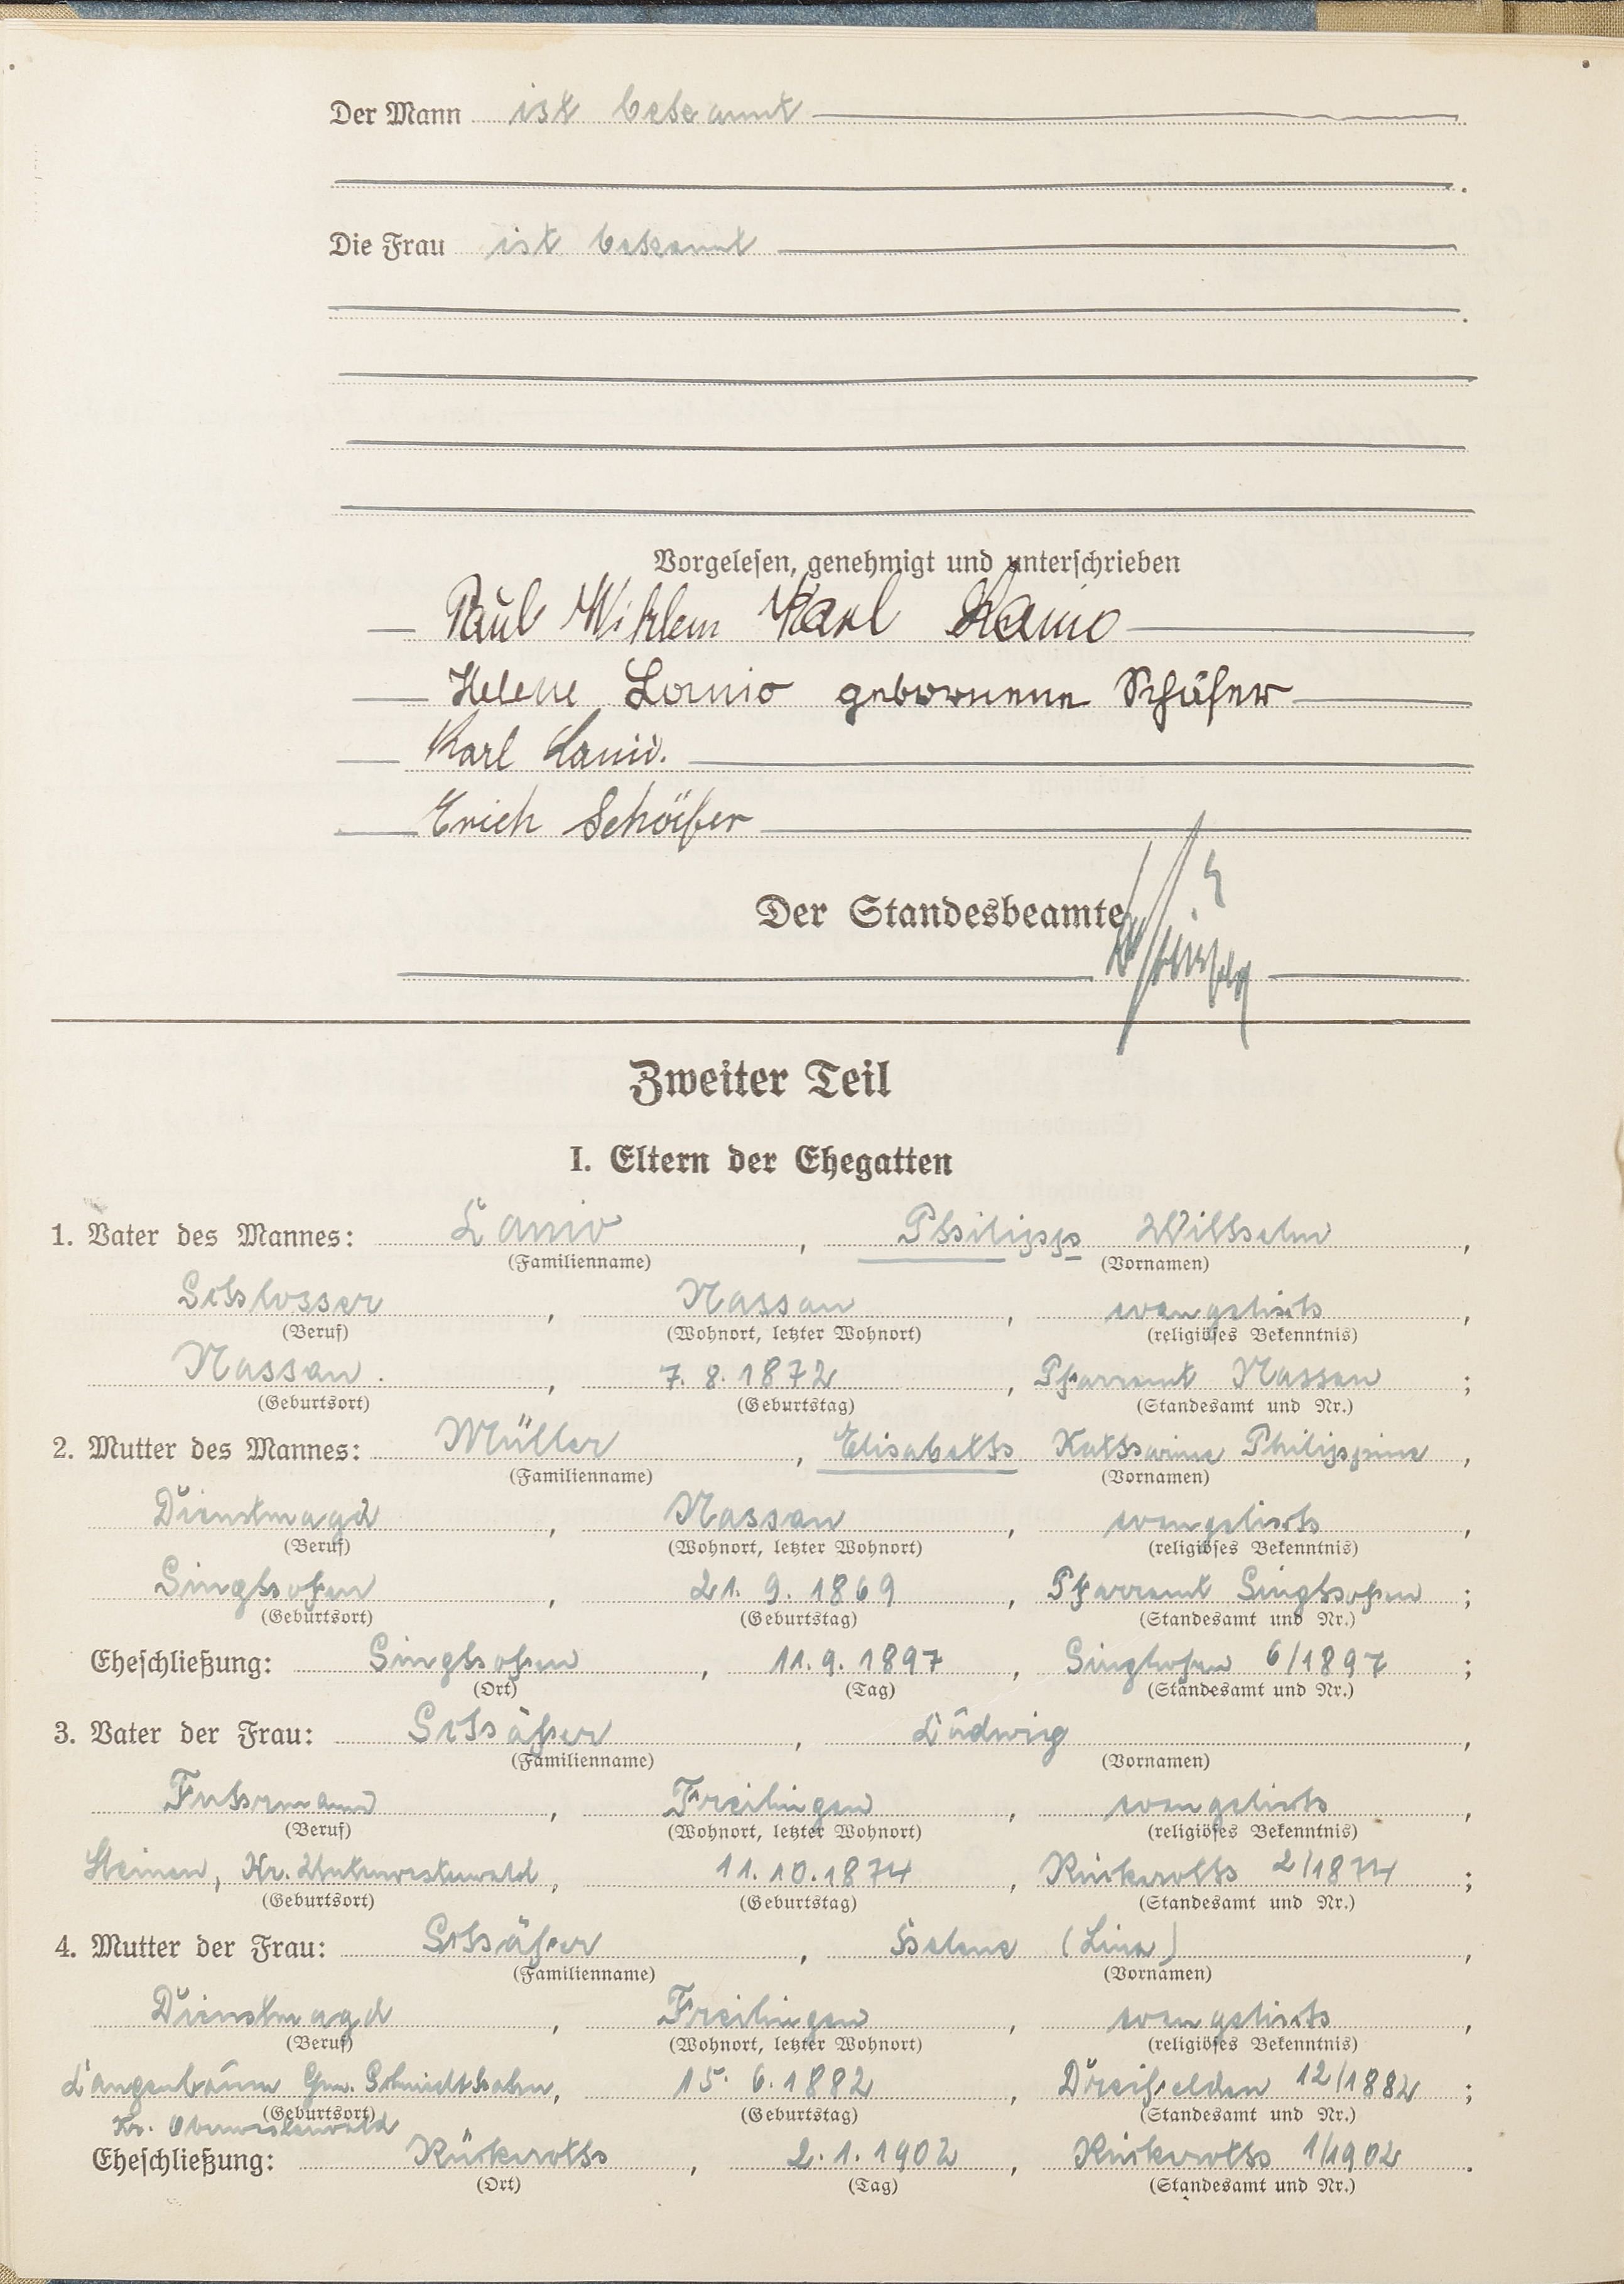 Der Mann ist bekannt
Die Frau ist bekannt
Vorgelesen, genehmigt und unterschrieben
Paul Wihlem Karl Lanio
Helene Lanio gebornene Schäfer
Karl Lanio.
Erich Schäfer
Der Standesbeamte
Zweiter Teil
I. Eltern der Ehegatten
1. Vater des Mannes: Lanio, Philipp Wilhelm,
(Familienname) (Vornamen)
Schlosser, Nassau, evangelisch,
(Beruf) (Wohnort, letzter Wohnort) (religiöses Bekenntnis)
Nassau., 7. 8. 1872, Pfarramt Nassau;
(Geburtsort) (Geburtstag) (Standesamt und Nr.)
2. Mutter des Mannes: Müller, Elisabeth Katharine Philippine,
(Familienname) (Vornamen)
Dienstmagd, Nassau, evangelisch,
(Beruf) (Wohnort, letzter Wohnort) (religiöses Bekenntnis)
Singhofen, 21. 9. 1869, Pfarramt Singhofen;
(Geburtsort) (Geburtstag) (Standesamt und Nr.)
Eheschließung: Singhofen, 11. 9. 1897, Singhofen 6/1897;
(Ort) (Tag) (Standesamt und Nr.)
3. Vater der Frau: Schäfer, Ludwig,
(Familienname) (Vornamen)
Fuhrmann, Freilingen, evangelisch,
(Beruf) (Wohnort, letzter Wohnort) (religiöses Bekenntnis)
Steinen, Kr. Unterwesterwald, 11. 10. 1874, Rückeroth 2/1874;
(Geburtsort) (Geburtstag) (Standesamt und Nr.)
4. Mutter der Frau: Schäfer, Helene (Lina),
(Familienname) (Vornamen)
Dienstmagd, Freilingen, evangelisch,
(Beruf) (Wohnort, letzter Wohnort) (religiöses Bekenntnis)
Langenbaum Gem. Schmidthahn, 15. 6. 1882, Dreifelden 12/1882;
(Geburtsort) (Geburtstag) (Standesamt und Nr.)
Kr. Oberwesterwald
Eheschließung: Rückeroth, 2. 1. 1902, Rückeroth 1/1902.
(Ort) (Tag) (Standesamt und Nr.)